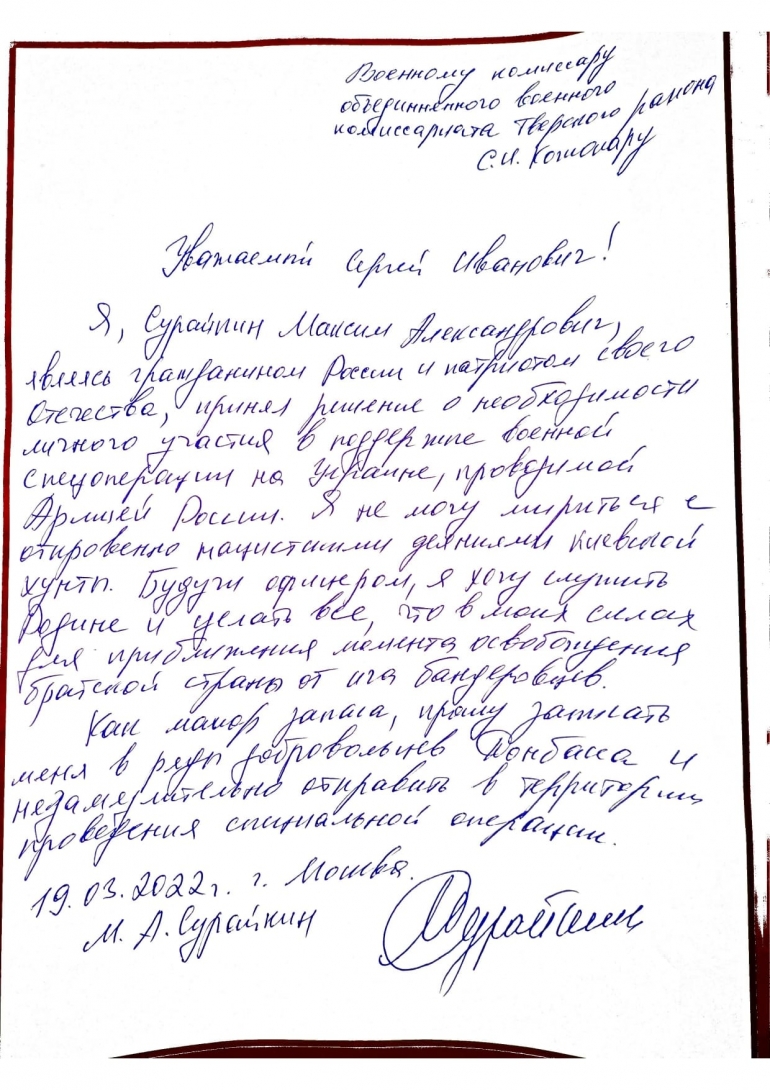 Военному комиссару
объединённого военного
комиссариата Тверского района
С.И. Кожокару
Уважаемый Сергей Иванович!
Я, Сурайкин Максим Александрович,
являясь гражданином России и патриотом своего
Отечества, принял решение о необходимости
личного участия в поддержке военной
спецоперации на Украине, проводимой
Армией России. Я не могу мириться с
откровенно нацистскими деяниями киевской
хунты. Будучи офицером, я хочу служить
Родине и делать всё, что в моих силах
для приближения момента освобождения
братской страны от ига бандеровцев.
Как майор запаса, прошу записать
меня в ряды добровольцев Донбасса и
незамедлительно отправить в территории
проведения специальной операции.
19.03.2022г. г. Москва.
М. А. Сурайкин
Сурайкин